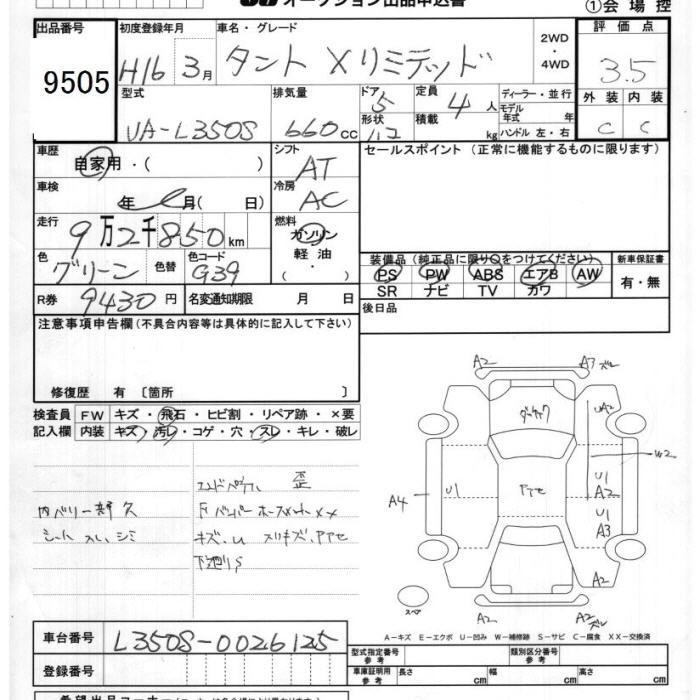 オークション出品申込書
①会場控
出品番号
9505
初度登録年月
H16 3月
車名・グレード
タント Xリミテッド
2WD
・
4WD
評価点
3.5
型式
UA-L350S
排気量
660cc
ドア
5
形状
ハコ
定員
4人
積載
kg
ディーラー・並行
モデル
年式 年
ハンドル 左・右
外装 内装
C C
車歴
自家用・( )
シフト
AT
セールスポイント(正常に機能するものに限ります)
車検
年 月( 日)
冷房
AC
走行
9万2千850km
燃料
ガソリン
軽油
( ・ )
色
グリーン
色替
色コード
G39
装備品(純正品に限り○をつけてください)
PS PW ABS エアB AW
SR ナビ TV カワ
新車保証書
有・無
R券
9430円
名変通知期限 月 日
後日品
注意事項申告欄(不具合内容等は具体的に記入して下さい)
修復歴 有〔箇所 〕
検査員 FW キズ・飛石・ヒビ割・リペア跡・×要
記入欄 内装 キズ・汚レ・コゲ・穴・スレ・キレ・破レ
歪
シート スレ、シミ
キズ、U スリキズ、
下廻りS
A2 A3
UA2
W2
U1
A2
A4
U1
U1
A3
A2
スペア
A2 A2
A-キズ E-エクボ U-凹み W-補修跡 S-サビ C-腐食 XX-交換済
車台番号
L350S-0026125
登録番号
型式指定番号
参考
類別区分番号
参考
車庫証明用
参考
長さ cm 幅 cm 高さ cm